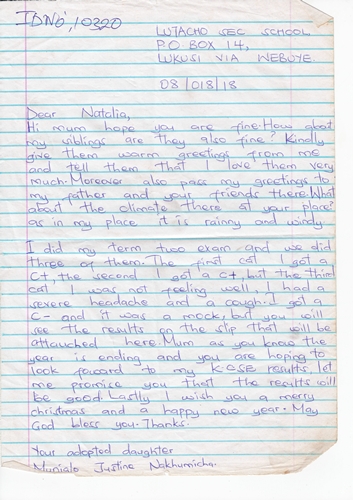 IDNo, 10320
LUTACHO SEC SCHOOL
P.O BOX 14,
LUKUSI VIA WEBUYE.
08/018/18
Dear Natalia,
Hi mum hope you are fine. How about
my siblings are they also fine? Kindly
give them warm greetings from me
and tell them that I love them very
much. Moreover also pass my greetings to
my father and your friends there. What
about the climate there at your place?
as in my place it is rainny and windy.
I did my term two exam and we did
three of them. The first cat I got a
C+, the second I got a C+, but the third
cat I was not feeling well, I had a
severe headache and a cough. I got a
C- and it was a mock, but you will
see the results on the slip that will be
attauched here. Mum as you know the
year is ending and you are hoping to
look foward to my K.C.S.E results, let
me promise you that the results will
be good. Lastly I wish you a merry
christmas and a happy new year. May
God bless you. Thanks.
Your adopted daughter
Munialo Justine Nakhumicha.